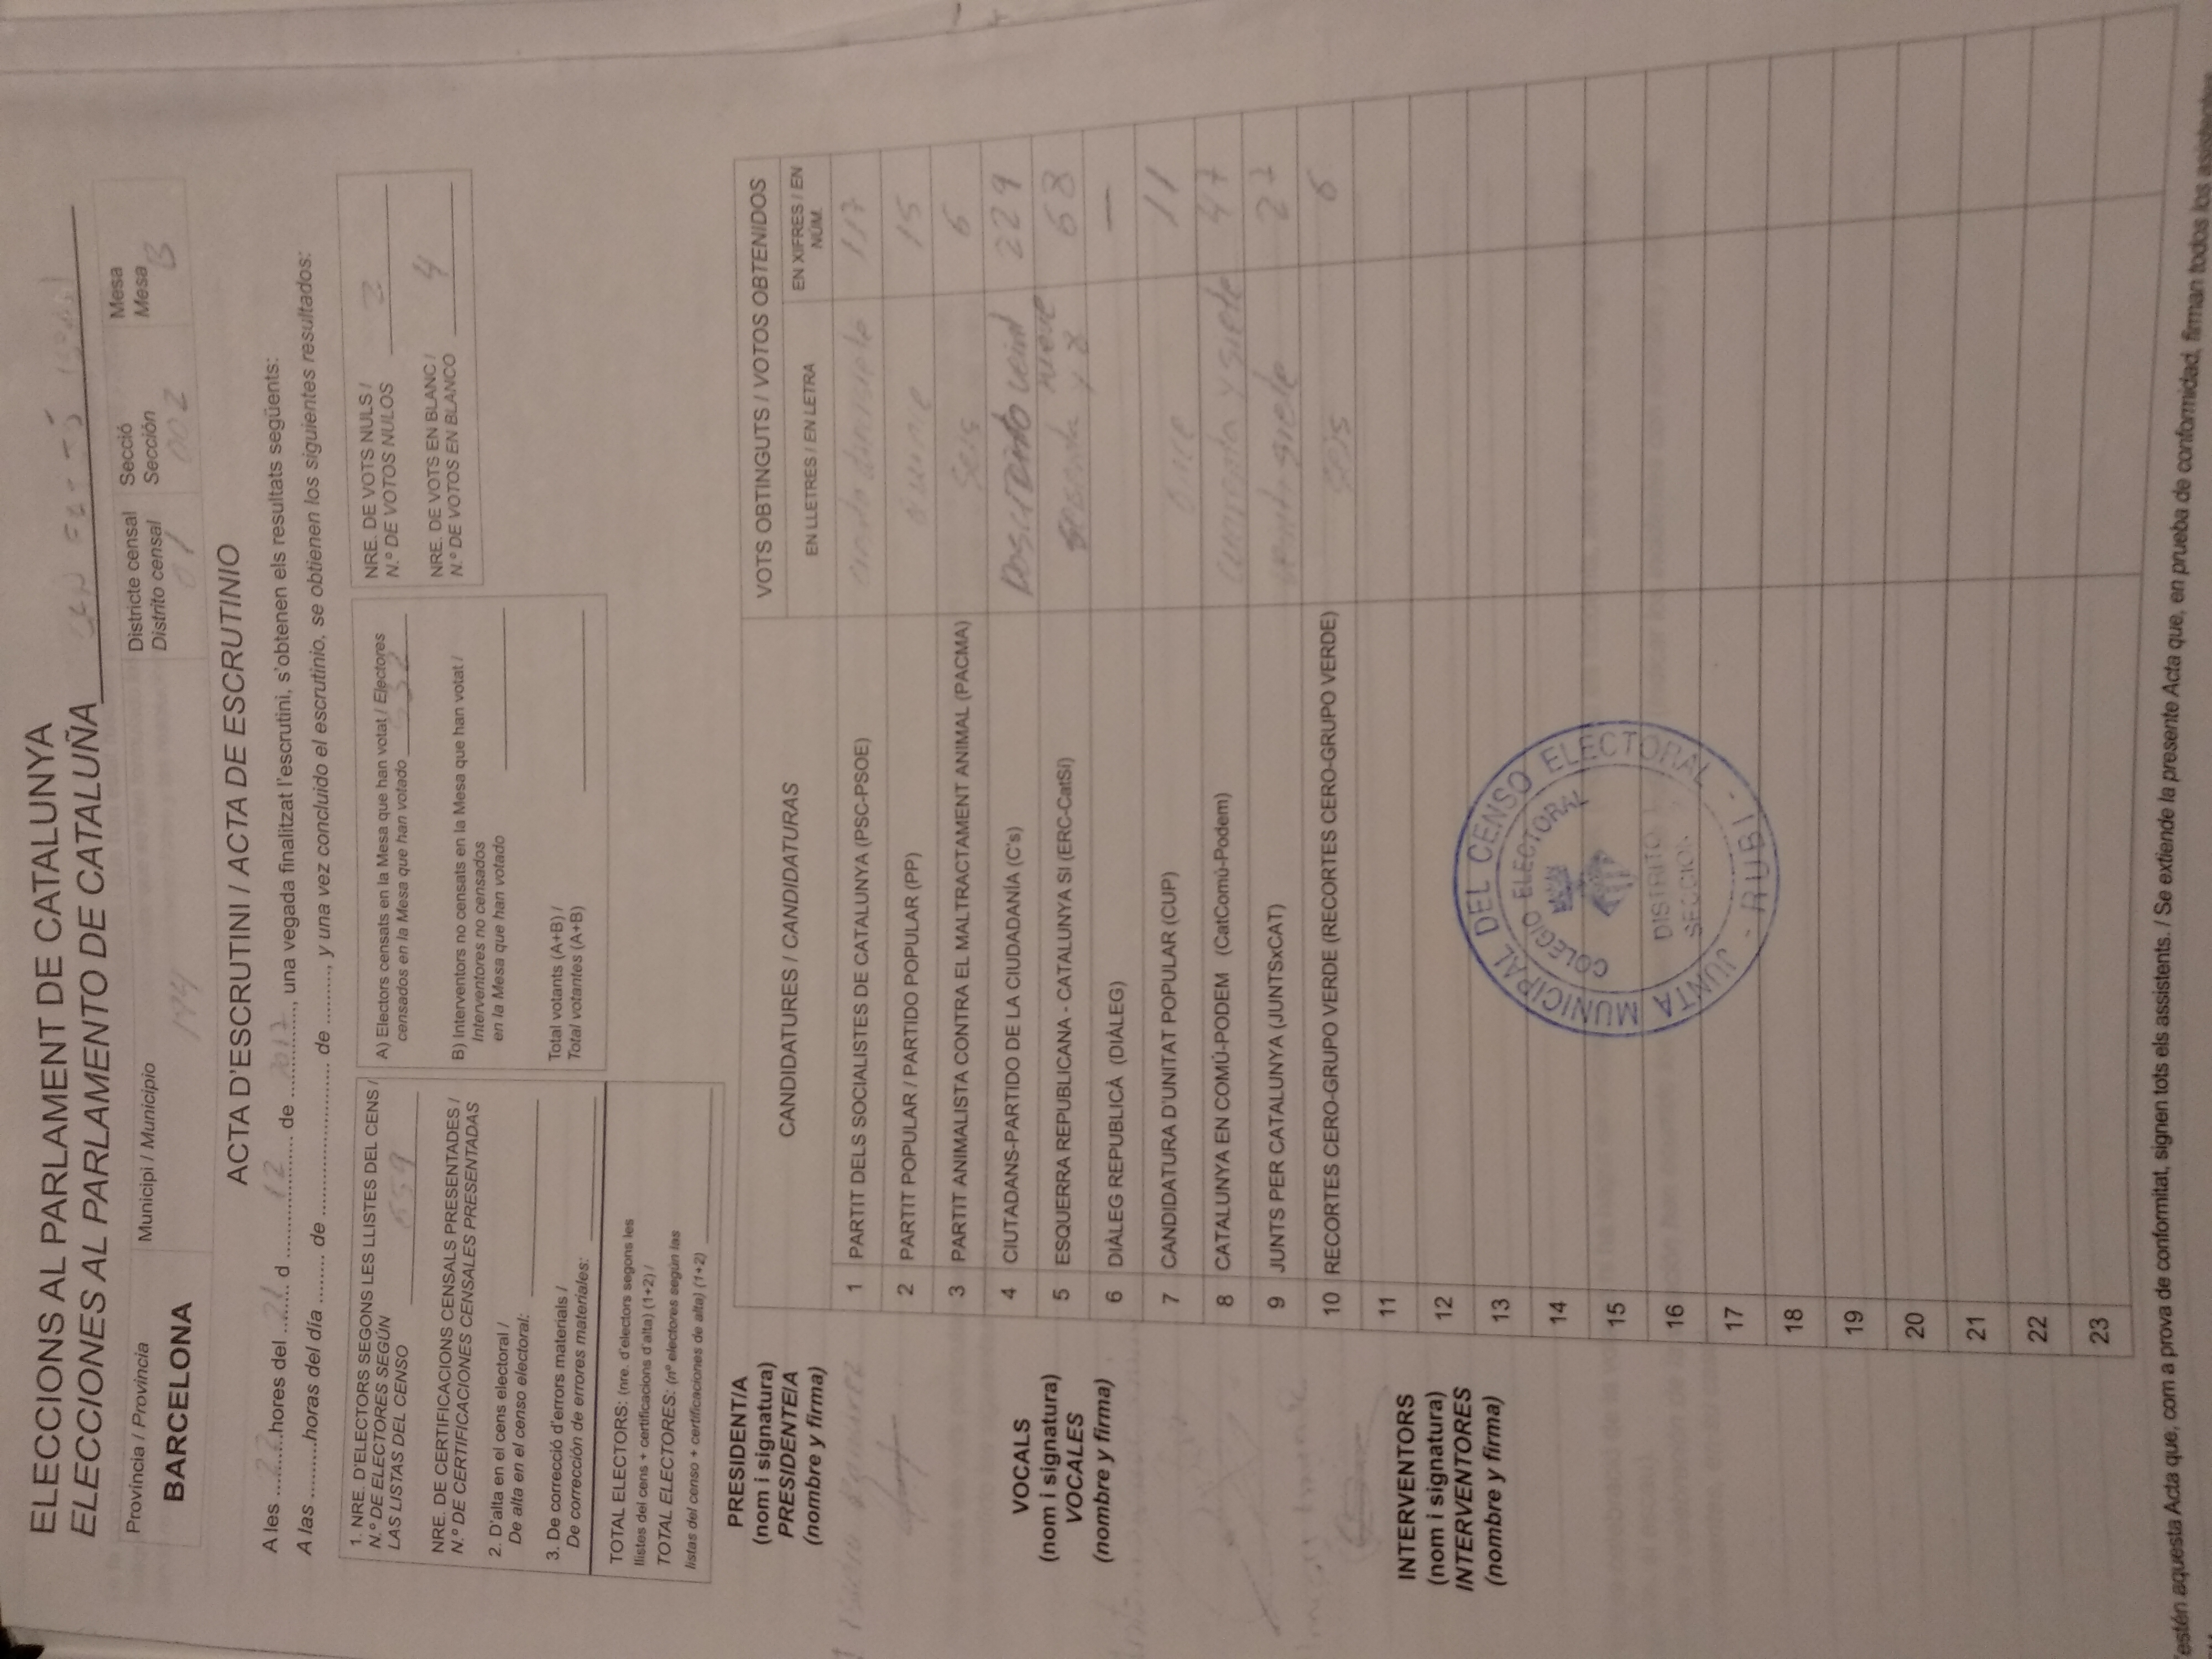 ELECCIONS AL PARLAMENT DE CATALUNYA
ELECCIONES AL PARLAMENTO DE CATALUÑA
Província / Provincia
BARCELONA
Municipi / Municipio
194
Districte censal
Distrito censal
01
Secció
Sección
002
Mesa
Mesa
B
ACTA D'ESCRUTINI / ACTA DE ESCRUTINIO
A les ...22...hores del ...21... d ...12... de ...2017..., una vegada finalitzat l'escrutini, s'obtenen els resultats següents:
A las .........horas del día ........ de ......................... de ........., y una vez concluido el escrutinio, se obtienen los siguientes resultados:
1. NRE. D'ELECTORS SEGONS LES LLISTES DEL CENS /
N.º DE ELECTORES SEGÚN
LAS LISTAS DEL CENSO 659
NRE. DE CERTIFICACIONS CENSALS PRESENTADES /
N.º DE CERTIFICACIONES CENSALES PRESENTADAS
2. D'alta en el cens electoral /
De alta en el censo electoral:
3. De correcció d'errors materials /
De corrección de errores materiales:
TOTAL ELECTORS: (nre. d'electors segons les
llistes del cens + certificacions d'alta) (1+2) /
TOTAL ELECTORES: (nº electores según las
listas del censo + certificaciones de alta) (1+2)
A) Electors censats en la Mesa que han votat / Electores
censados en la Mesa que han votado 532
B) Interventors no censats en la Mesa que han votat /
Interventores no censados
en la Mesa que han votado
Total votants (A+B) /
Total votantes (A+B)
NRE. DE VOTS NULS /
N.º DE VOTOS NULOS 2
NRE. DE VOTS EN BLANC /
N.º DE VOTOS EN BLANCO 4
PRESIDENT/A
(nom i signatura)
PRESIDENTE/A
(nombre y firma)
Ramirez
VOCALS
(nom i signatura)
VOCALES
(nombre y firma)
INTERVENTORS
(nom i signatura)
INTERVENTORES
(nombre y firma)
CANDIDATURES / CANDIDATURAS
VOTS OBTINGUTS / VOTOS OBTENIDOS
EN LLETRES / EN LETRA
EN XIFRES / EN
NÚM.
1 PARTIT DELS SOCIALISTES DE CATALUNYA (PSC-PSOE) ciento diecisiete 117
2 PARTIT POPULAR / PARTIDO POPULAR (PP) quince 15
3 PARTIT ANIMALISTA CONTRA EL MALTRACTAMENT ANIMAL (PACMA) seis 6
4 CIUTADANS-PARTIDO DE LA CIUDADANÍA (C's) Dosciento veint 229
nueve
5 ESQUERRA REPUBLICANA - CATALUNYA SI (ERC-CatSí) sesenta y 8 68
6 DIÀLEG REPUBLICÀ (DIÀLEG) —
7 CANDIDATURA D'UNITAT POPULAR (CUP) once 11
8 CATALUNYA EN COMÚ-PODEM (CatComú-Podem) cuarenta y siete 47
9 JUNTS PER CATALUNYA (JUNTSxCAT) veintisiete 27
10 RECORTES CERO-GRUPO VERDE (RECORTES CERO-GRUPO VERDE) seis 6
11
12
13
14
15
16
17
18
19
20
21
22
23
JUNTA MUNICIPAL DEL CENSO ELECTORAL
COLEGIO ELECTORAL
DISTRITO
SECCION
- RUBI -
estén aquesta Acta que, com a prova de conformitat, signen tots els assistents. / Se extiende la presente Acta que, en prueba de conformidad, firman todos los asistentes